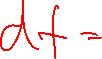 df =